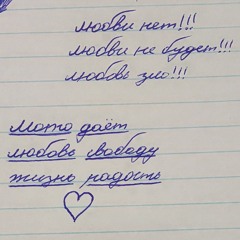 любви нет!!!
любви не будет!!!
любовь зло!!!
Мото даёт
любовь свободу
жизнь радость